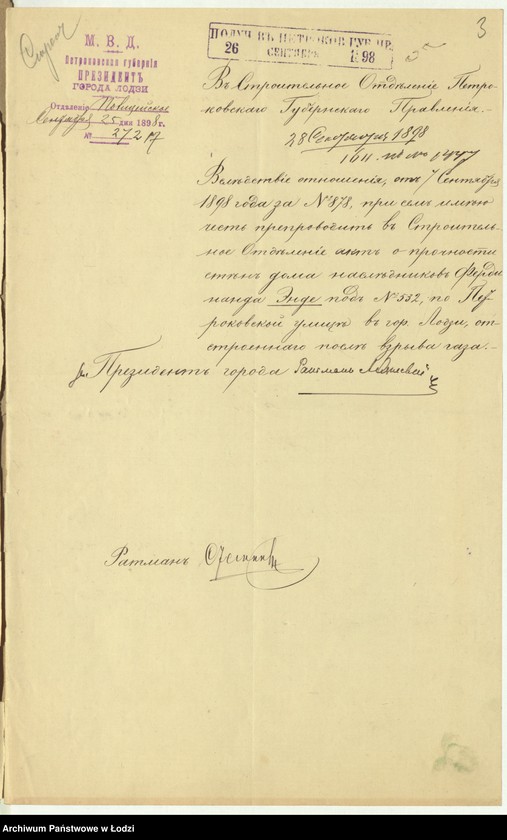 3
М. В. Д.
Петроковская губернія
ПРЕЗИДЕНТЪ
ГОРОДА ЛОДЗИ
Отдѣленіе Полицейское
Сентября 25 дня 1898 г.
№ 272
ПОЛУЧ. ВЪ ПЕТРОКОВ. ГУБ. ПР.
26 СЕНТЯБРЬ 1898
Въ Строительное Отдѣленіе Петро-
ковскаго Губернскаго Правленія.-
28 Сентября 1898
Вслѣдствіе отношенія, отъ 7 Сентября
1898 года за № 878, при семъ имѣю
честь препроводить въ Строитель-
ное Отдѣленіе актъ о прочности
стѣнъ дома наслѣдниковъ Ферди
нанда Энде подъ № 532, по Пет
роковской улицѣ въ гор. Лодзи, от-
строеннаго послѣ взрыва газа.-
Президентъ города Ратманъ
Ратманъ
Archiwum Państwowe w Łodzi